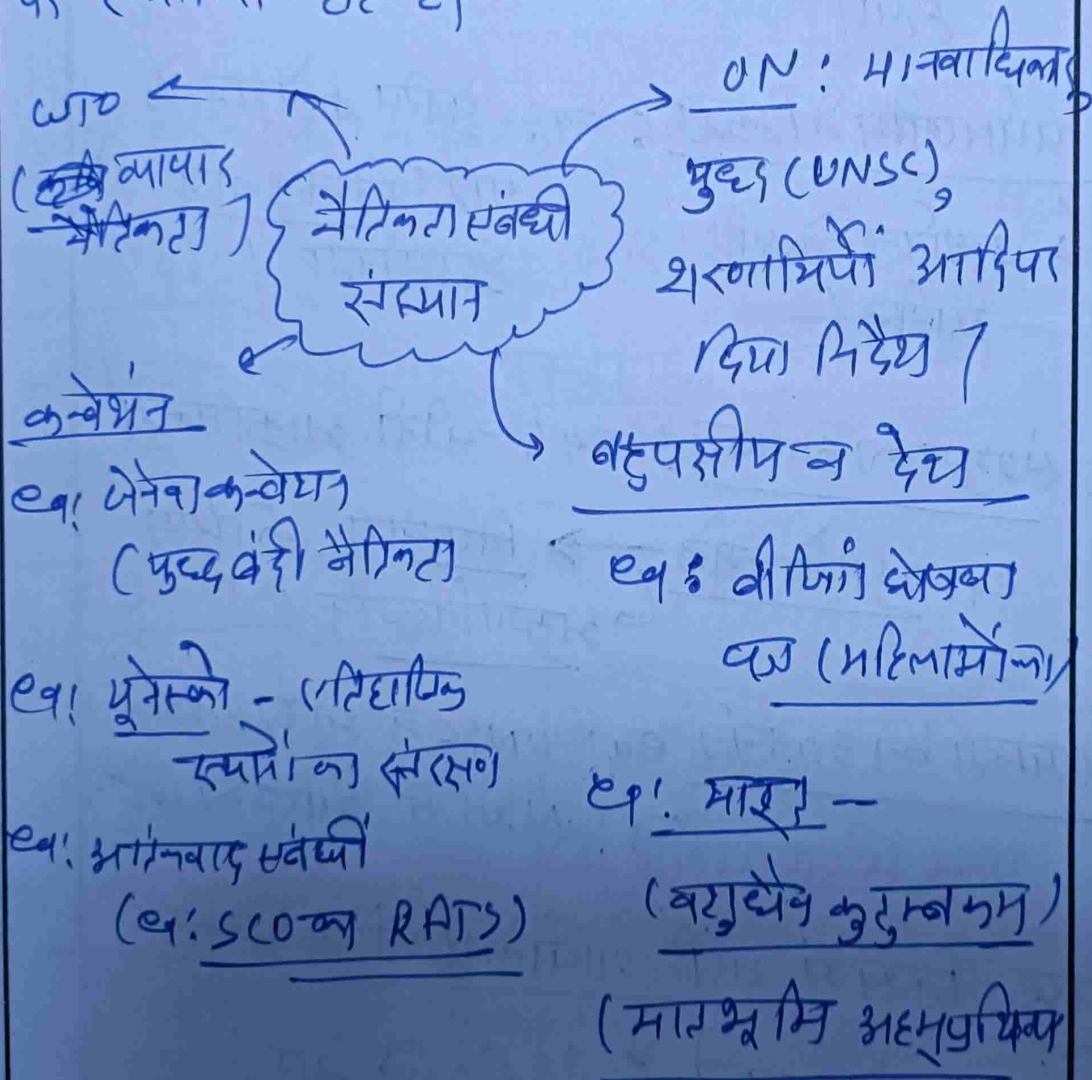 WTO
(व्यापार
नैतिकता)
नैतिकता संबंधी
संस्थान
UN : मानवाधिकार,
युद्ध (UNSC),
शरणार्थियों आदि पर
दिशा निर्देश।
कन्वेंशन
eg: जेनेवा कन्वेंशन
(युद्ध बंदी नैतिकता
eg: यूनेस्को - ऐतिहासिक
स्थानों का संरक्षण
eg: आतंकवाद संबंधी
(eg: SCO का RATS)
बहुपक्षीय व देश
eg: बीजिंग घोषणा
पत्र (महिलाओं का)
eg: भारत -
(वसुधैव कुटुम्बकम)
(माता भूमि अहम् पृथिव्या